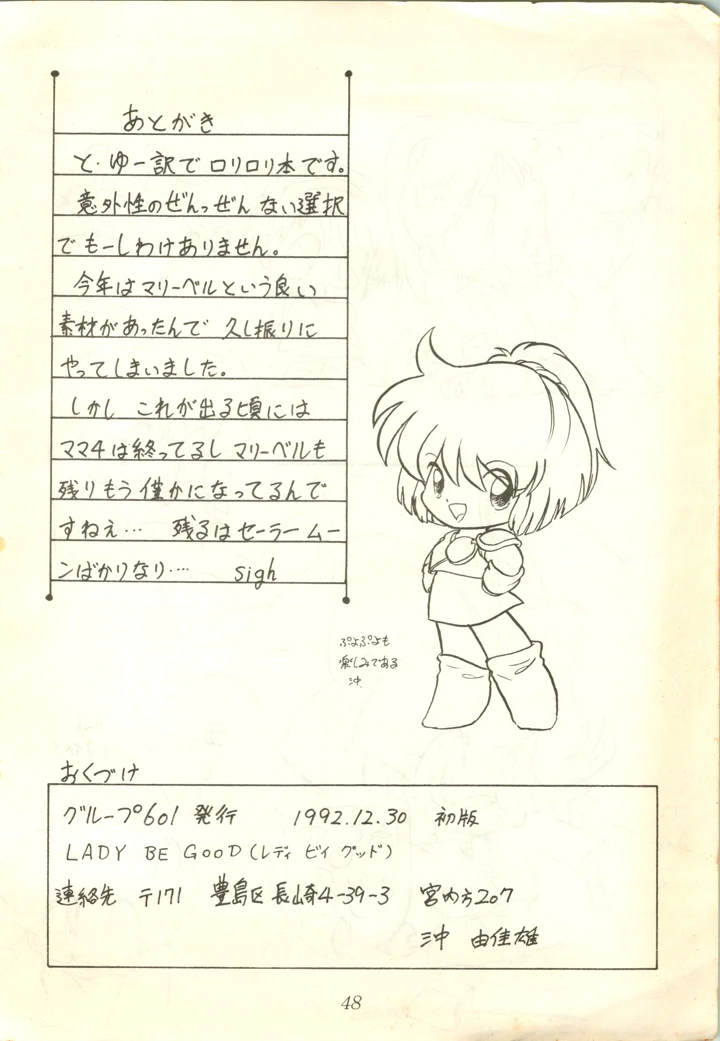 あとがき
と・ゆー訳でロリロリ本です。
意外性のぜんっぜんない選択
でもーしわけありません。
今年はマリーベルという良い
素材があったんで 久し振りに
やってしまいました。
しかし これが出る頃には
ママ4は終ってるし マリーベルも
残りもう僅かになってるんで
すねぇ… 残るはセーラームー
ンばかりなり‥‥ sigh
ぷよぷよも
楽しみである
沖
おくづけ
グループ601 発行 1992.12.30 初版
LADY BE GOOD(レディ ビィ グッド)
連絡先 〒171 豊島区長崎4-39-3 宮内方207
沖 由佳雄
48